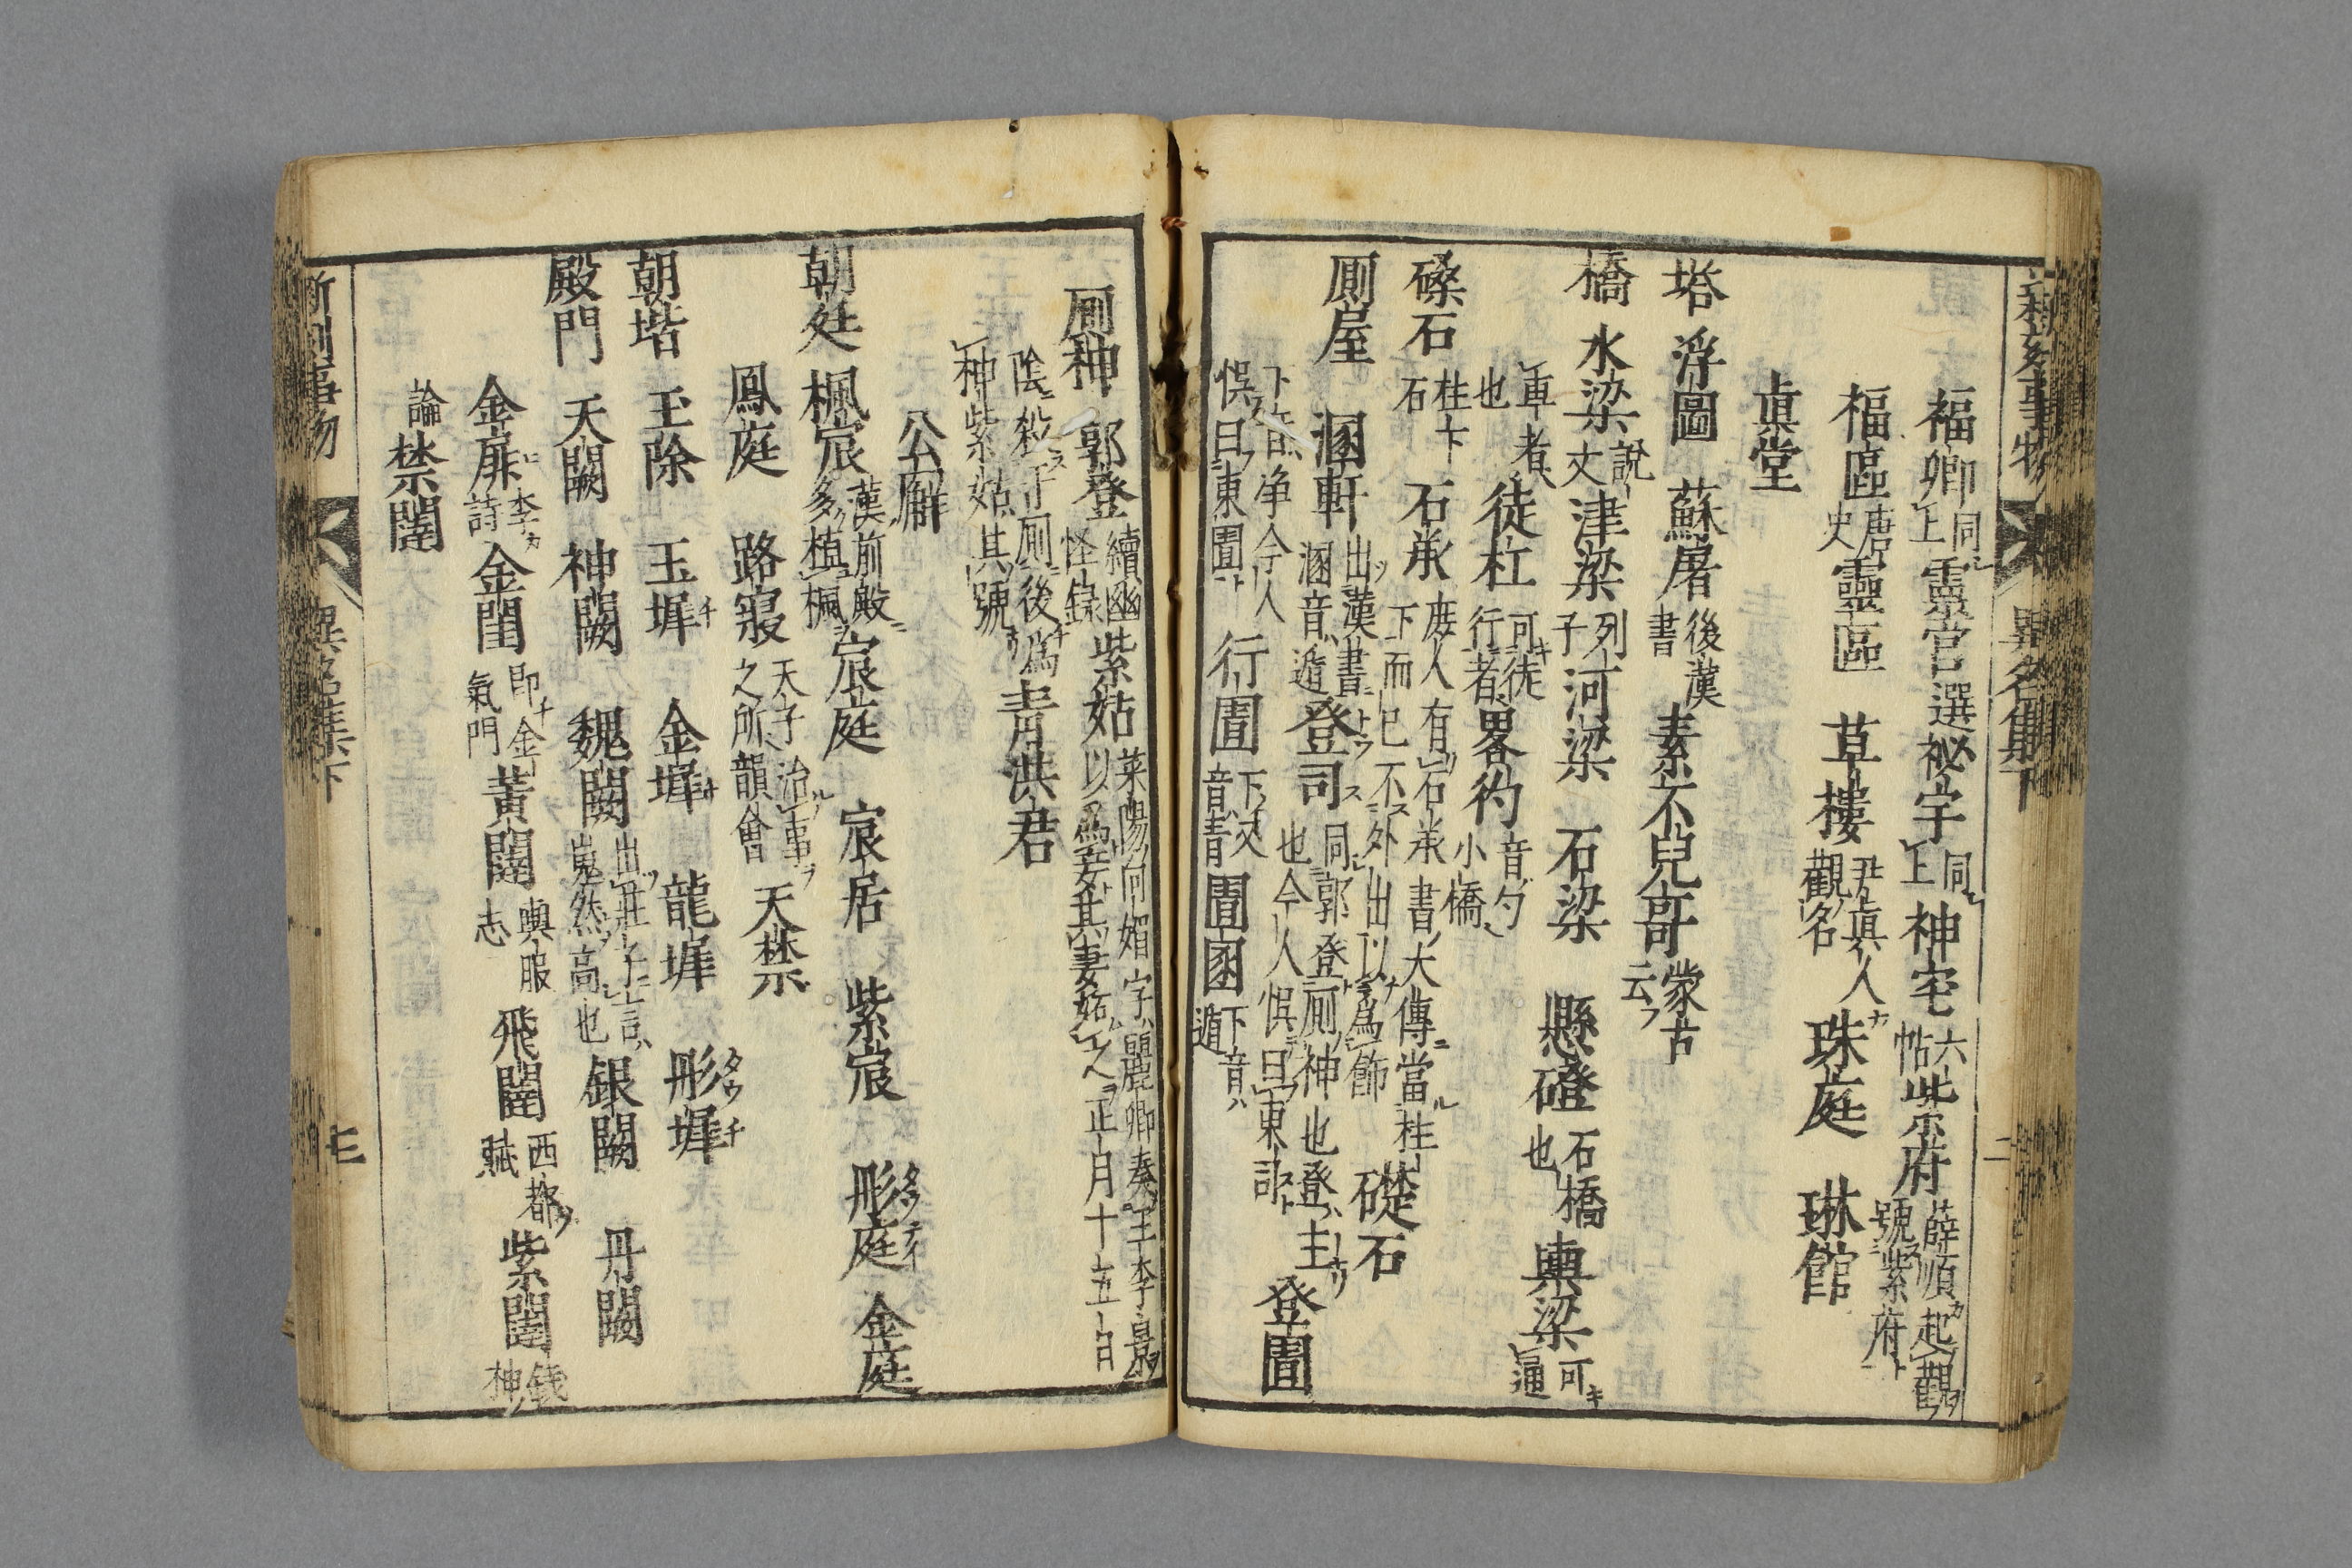 福卿同上靈官選祕宇同上神宅六帖紫府薛順起觀號紫府
福區唐史靈區 草樓尹眞人觀名珠庭 琳館
眞堂
塔 浮圖 蘇屠後漢書素不兒哥蒙古云
橋 水梁說文津梁列子河梁 石梁 懸磴石橋也輿梁可通
車者也徒杠可徒行者畧彴音勺小橋
磉石 柱下石石承庾人有石承下而已不書大傳當柱外出以爲飾礎石
厠屋 溷軒出漢書溷音遁登司同郭登厠神也登主也今人悞曰東司登圊
下音净今人悞曰東圊行圊下又音青圊圂下音遁
厠神 郭登續幽怪錄紫姑萊陽何媚字麗卿奏王李景以爲妾其妻妬之正月十五日
陰殺于厠後爲神紫姑其號青洪君
公廨
朝廷 楓宸漢前殿多植楓宸庭 宸居 紫宸 彤庭 金庭
鳳庭 路寢天子治事之所韻會天禁
朝堦 玉除 玉墀 金墀 龍墀 彤墀
殿門 天闕 神闕 魏闕出莊子言嵬然高也銀闕 丹闕
金扉李詩金閨即金門黃闥輿服志飛闥西都賦紫闥錢神
論禁闥
異名集下